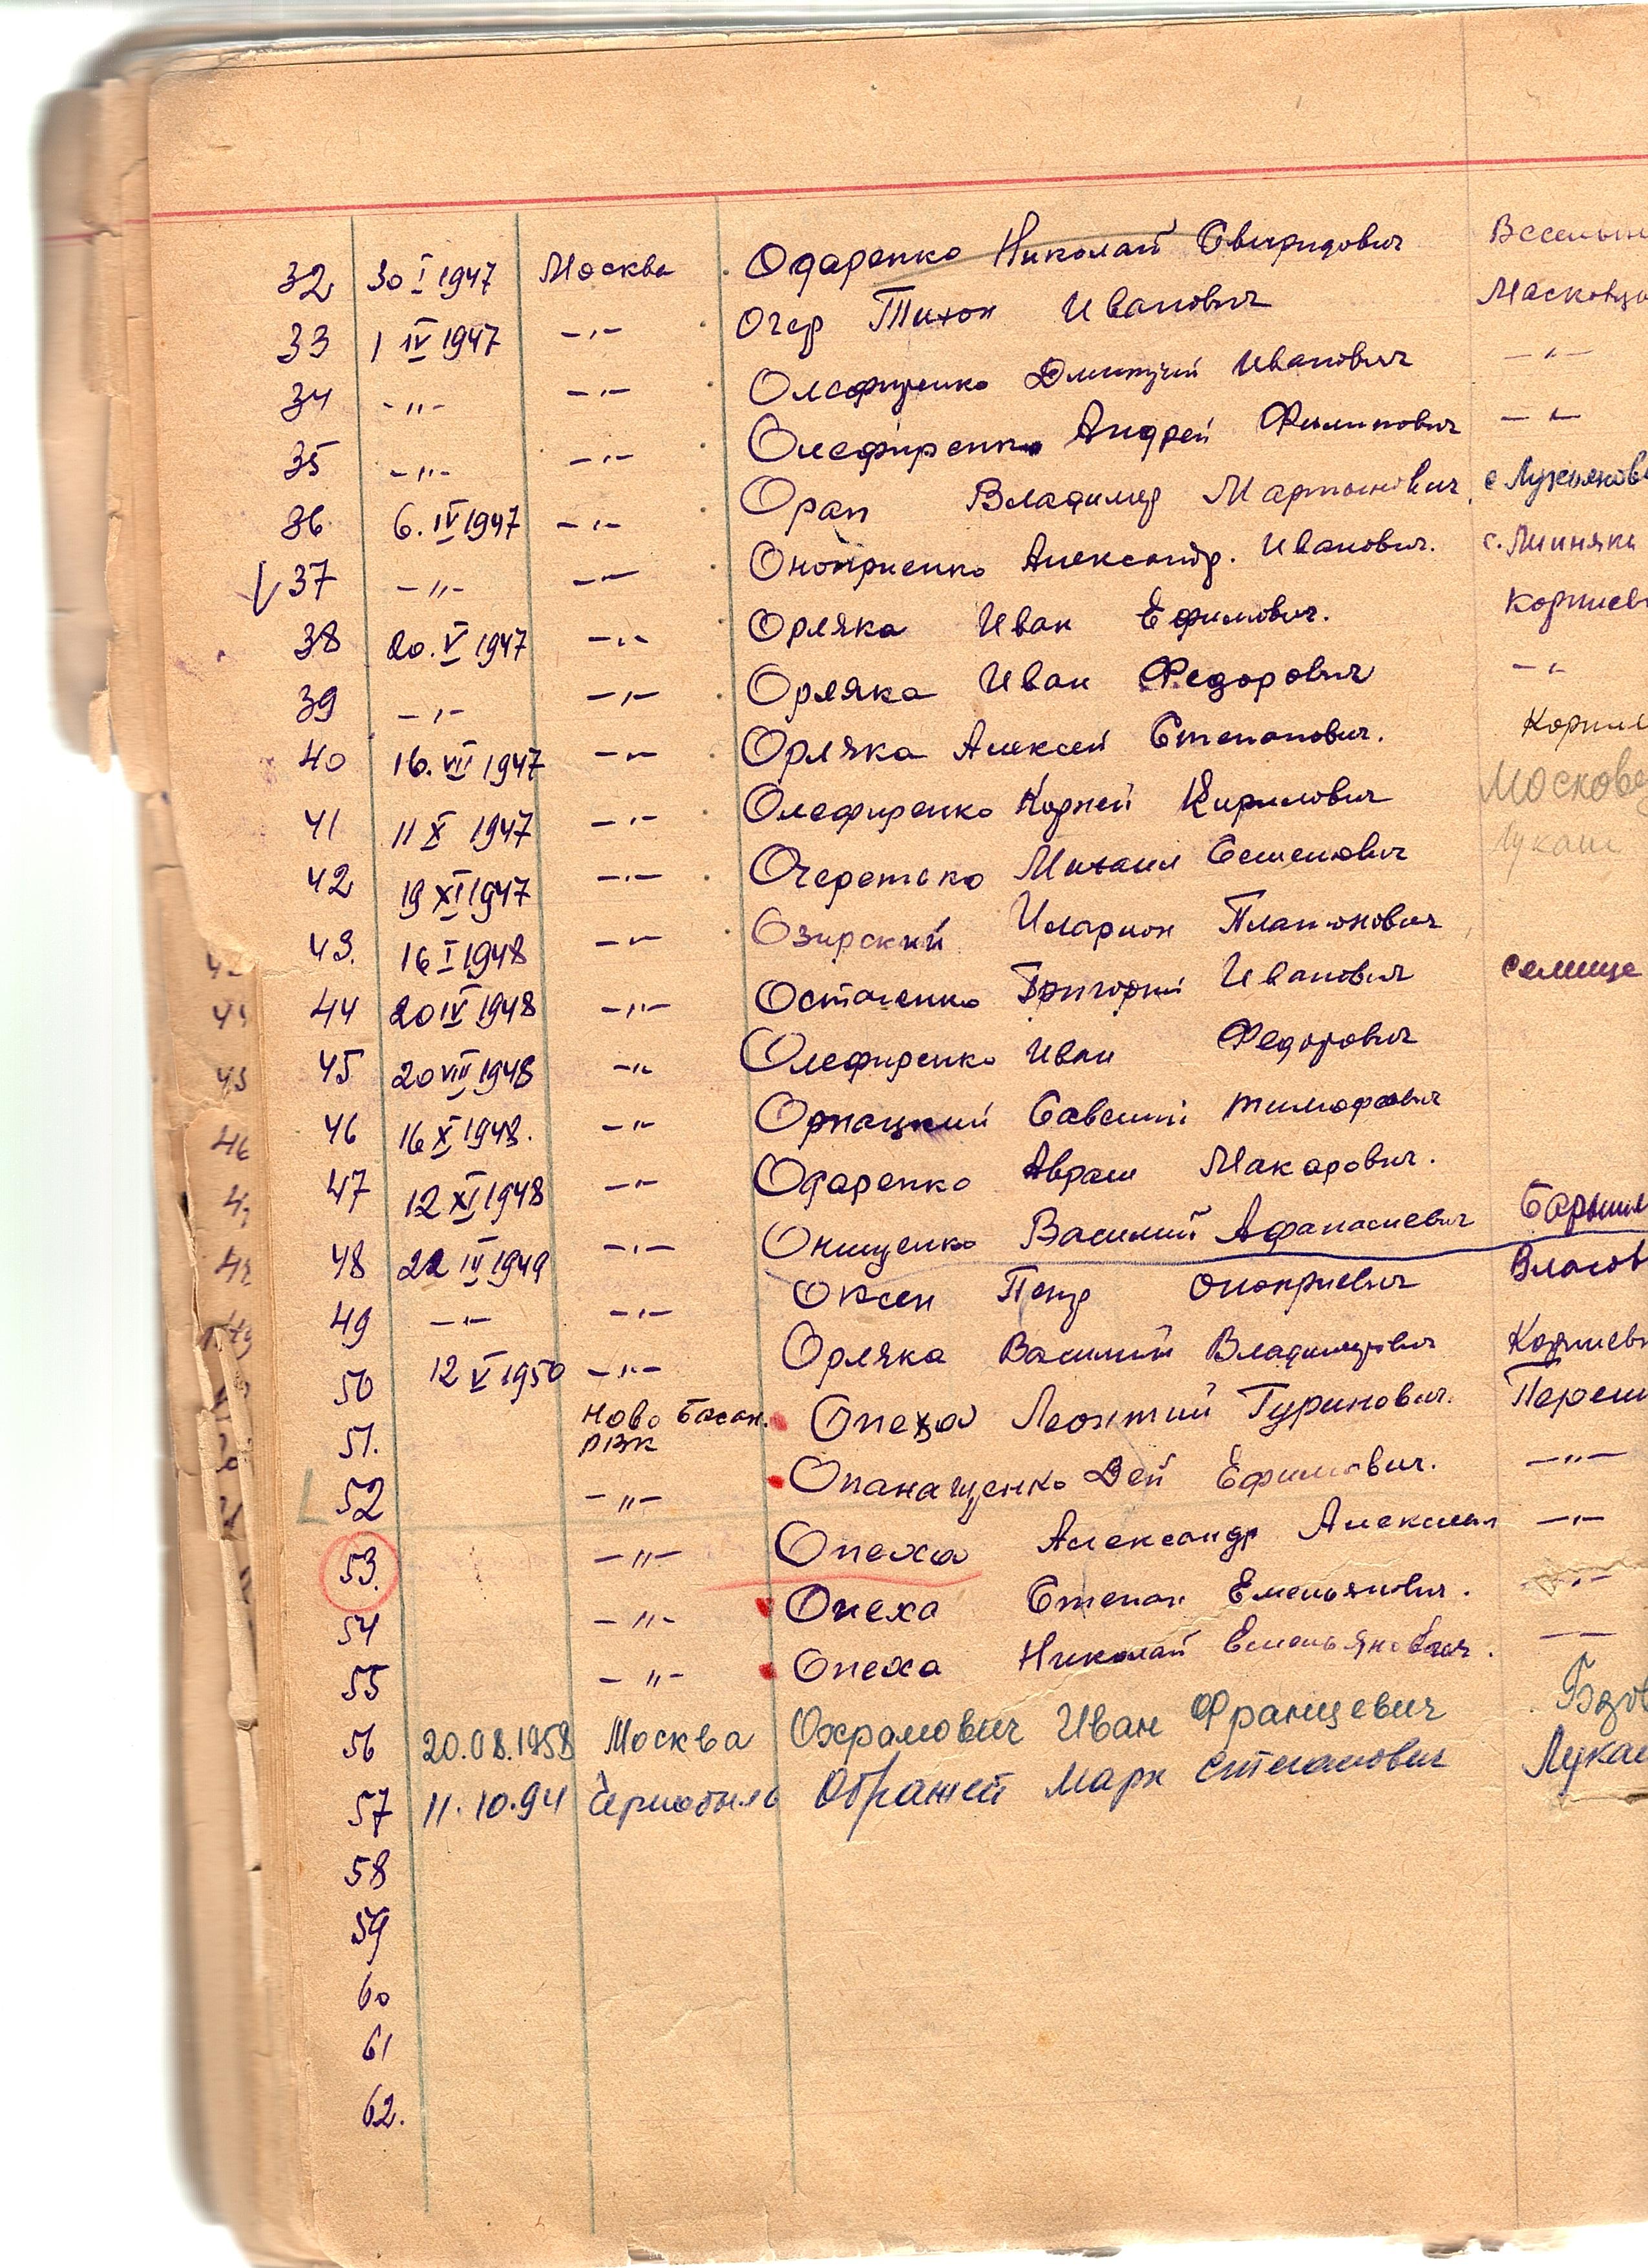 32 30 I 1947 Москва Одаренко Николай Свиридович
33 1 IV 1947 -"- Очер Тихон Иванович
34 -"- -"- Олефиренко Дмитрий Иванович -"-
35 -"- -"- Олефиренко Андрей Филипович -"-
36 6. IV 1947 -"- Орап Владимир Мартынович
37 -"- -"- Оноприенко Александр. Иванович. с. Лихняки
38 20. V 1947 -"- Орляка Иван Ефимович.
39 -"- -"- Орляка Иван Федорович -"-
40 16. VII 1947 -"- Орляка Алексей Степанович.
41 11 X 1947 -"- Олефиренко Корней Кирилович
42 19 XI 1947 -"- Очеретько Михаил Семенович
43. 16 I 1948 -"- Озирский Иларион Платонович
44 20 IV 1948 -"- Остапенко Григорий Иванович селище
45 20 VIII 1948 -"- Олефиренко Иван Федорович
46 16 X 1948. -"- Савелий Тимофеевич
47 12 XI 1948 -"- Одаренко Аврам Макарович.
48 22 III 1949 -"- Онищенко Василий Афанасиевич
49 -"- -"- Оксен Петр Оноприевич
50 12 V 1950 -"- Орляка Василий Владимирович
51. Ново Басан. Опеха Леонтий Гуринович.
РВК
52 -"- Опанащенко Вей Ефимович. -"-
53. -"- Опеха Александр Алексеев -"-
54 -"- Опеха Степан Емельянович. -"-
55 -"- Опеха Николай Емельянович. -"-
56 20.08.1958 Москва Охрамович Иван Францевич
57 11.10.94 Чернобыль Ображей Марк Степанович
58
59
60
61
62.